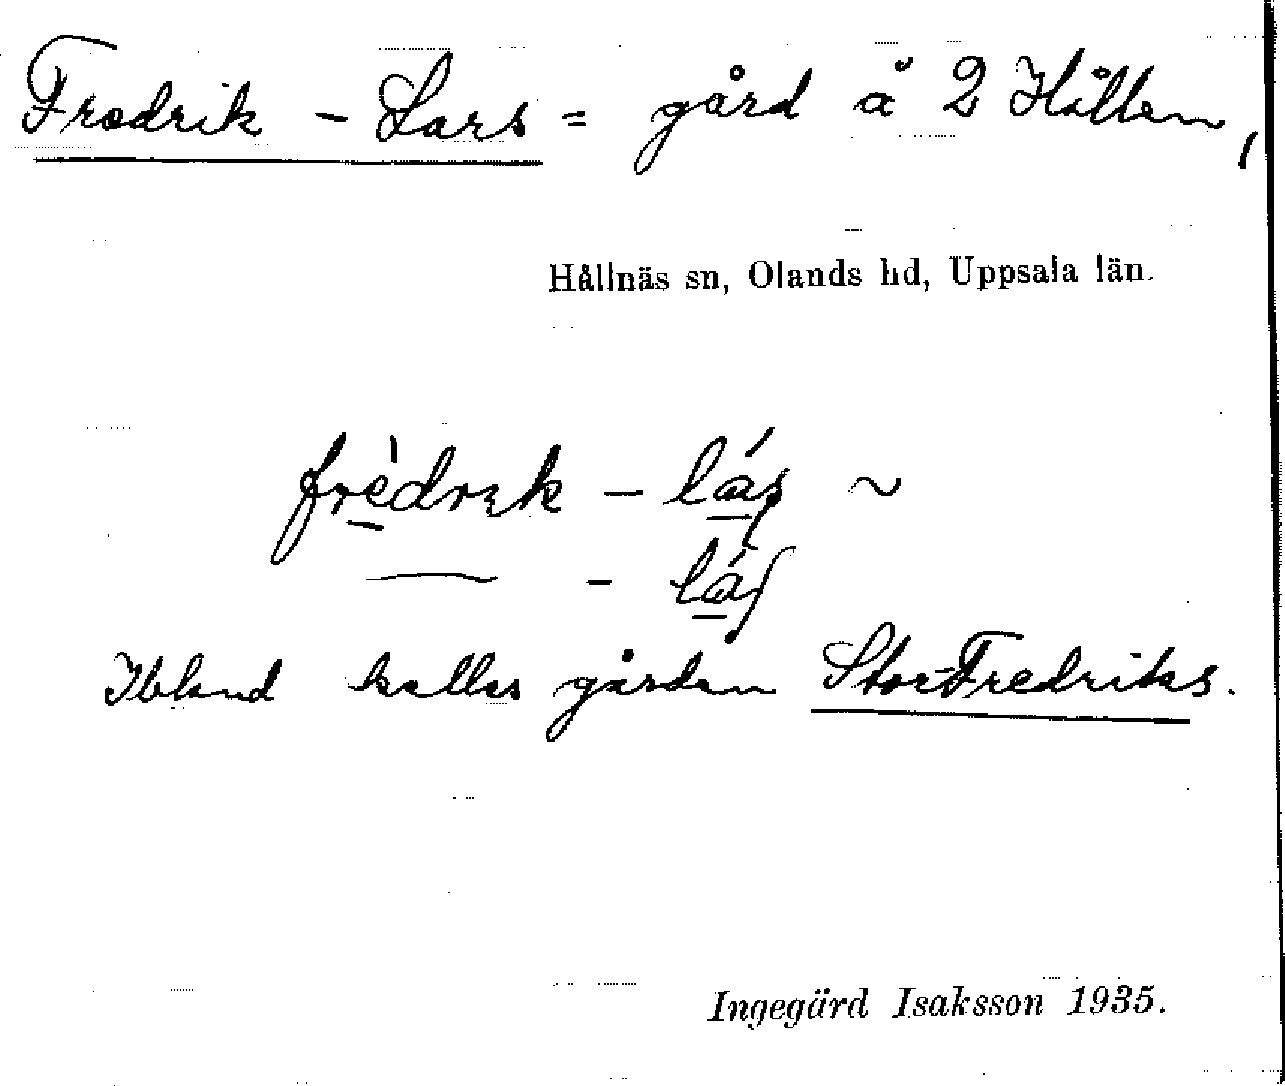 Fredrik - Lars = gård å 2 Hållen,
Hållnäs sn, Olands hd, Uppsala län.
frèdrɩk - lás ~
— - láʃ
Ibland kallas gården Stor-Fredriks.
Ingegärd Isaksson 1935.